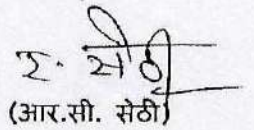 र. सेठी
(आर.सी. सेठी)